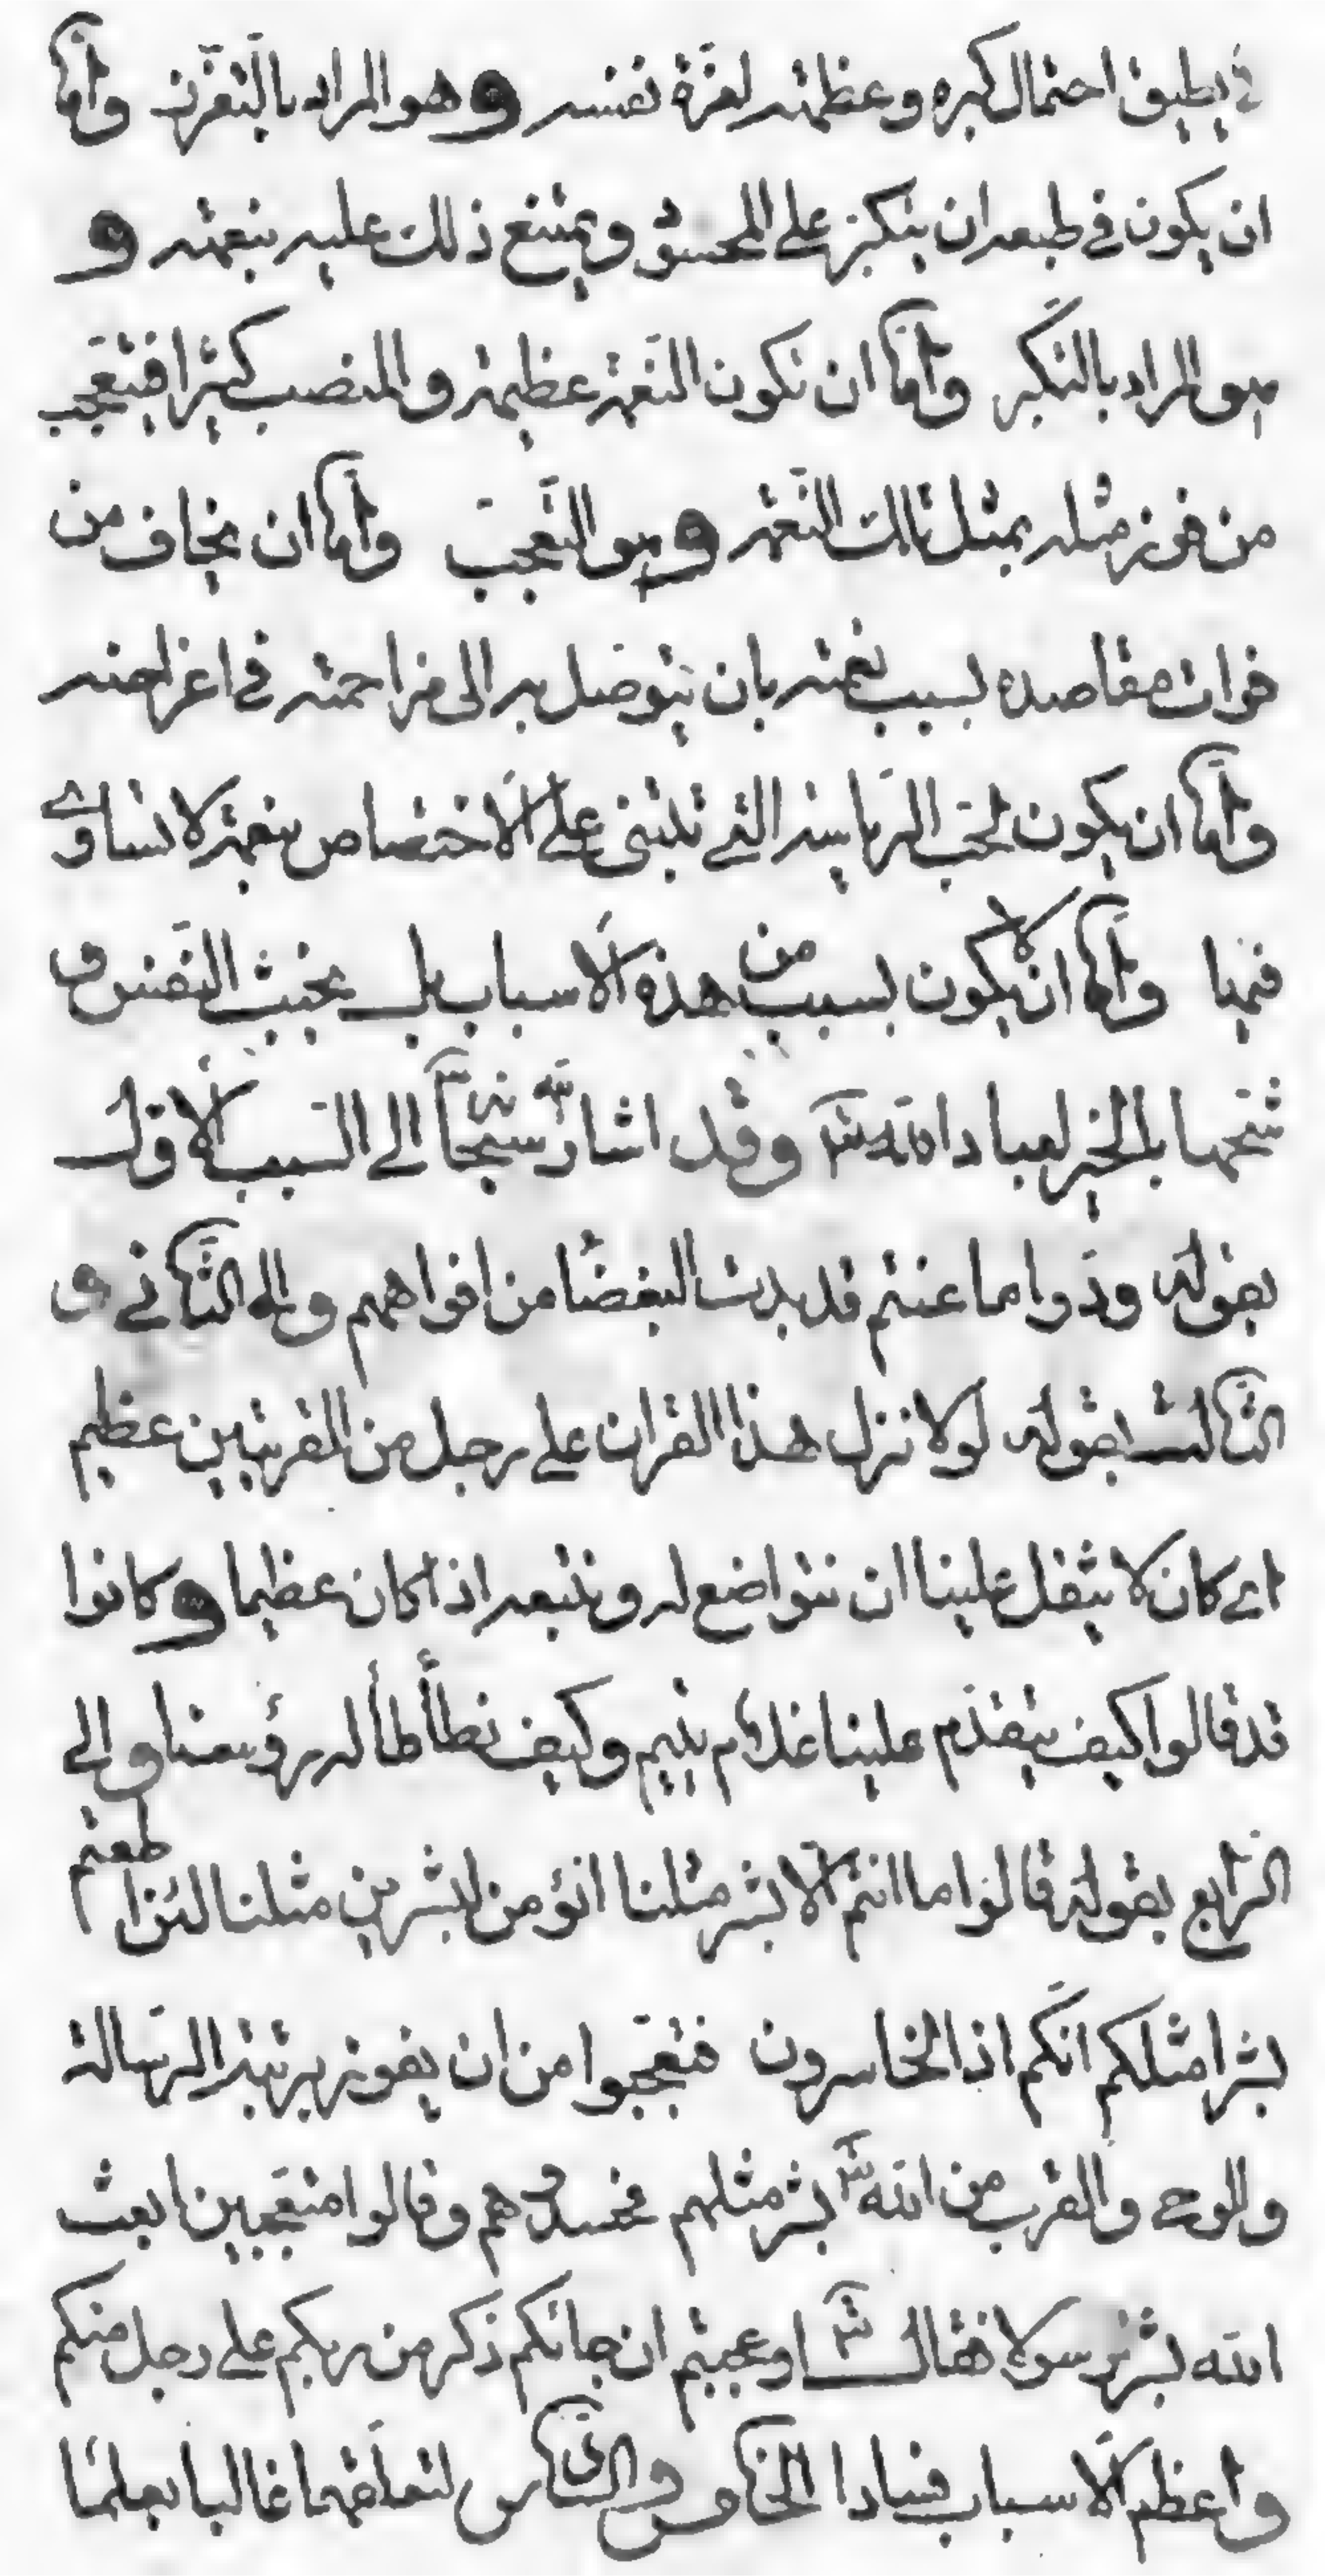 يطيق احتمال كبره وعظمته لعزة نفسه وهو المراد بالتعزز واما
ان يكون في طبعه ان يتكبر على المحسود ويمتنع ذلك عليه بنعمته و
هو المراد بالتكبر واما ان تكون النعمة عظيمة والمنصب كبيرا فيتعجب
من فوز مثله بمثل تلك النعمة وهو التعجب واما ان يخاف من
فوات مقاصده بسبب نعمته بان يتوصل به الى مزاحمته في اغراضه
واما ان يكون لحب الرياسة التي تبتني على الاختصاص بنعمة لا تساوى
فيها واما ان لا يكون بسبب من هذه الاسباب بل بخبث النفس و
شحها بالخير لعباد الله تع وقد اشار الله سبحانه الى السبب الاول
بقوله ودوا ما عنتم قد بدت البغضا من افواههم والى الثاني و
الثالث بقوله لولا نزل هذا القران على رجل من القريتين عظيم
اى كان لا يثقل علينا ان نتواضع له ونتبعه اذا كان عظيما وكانوا
قد قالوا كيف يتقدم علينا غلام يتيم وكيف نطأطأ له رؤسنا والى
الرابع بقوله قالوا ما انتم الا بشر مثلنا انؤمن لبشرين مثلنا لئن اطعتم
بشرا مثلكم انكم اذا لخاسرون فتعجبوا من ان يفوز برتبة الرسالة
والوحى والقرب من الله تع بشر مثلهم فحسدوهم وقالوا متعجبين ابعث
الله بشرا رسولا فقال تع اوعجبتم ان جائكم ذكر من ربكم على رجل منكم
واعظم الاسباب فسادا الخامس والسادس لتعلقهما غالبا بعلما